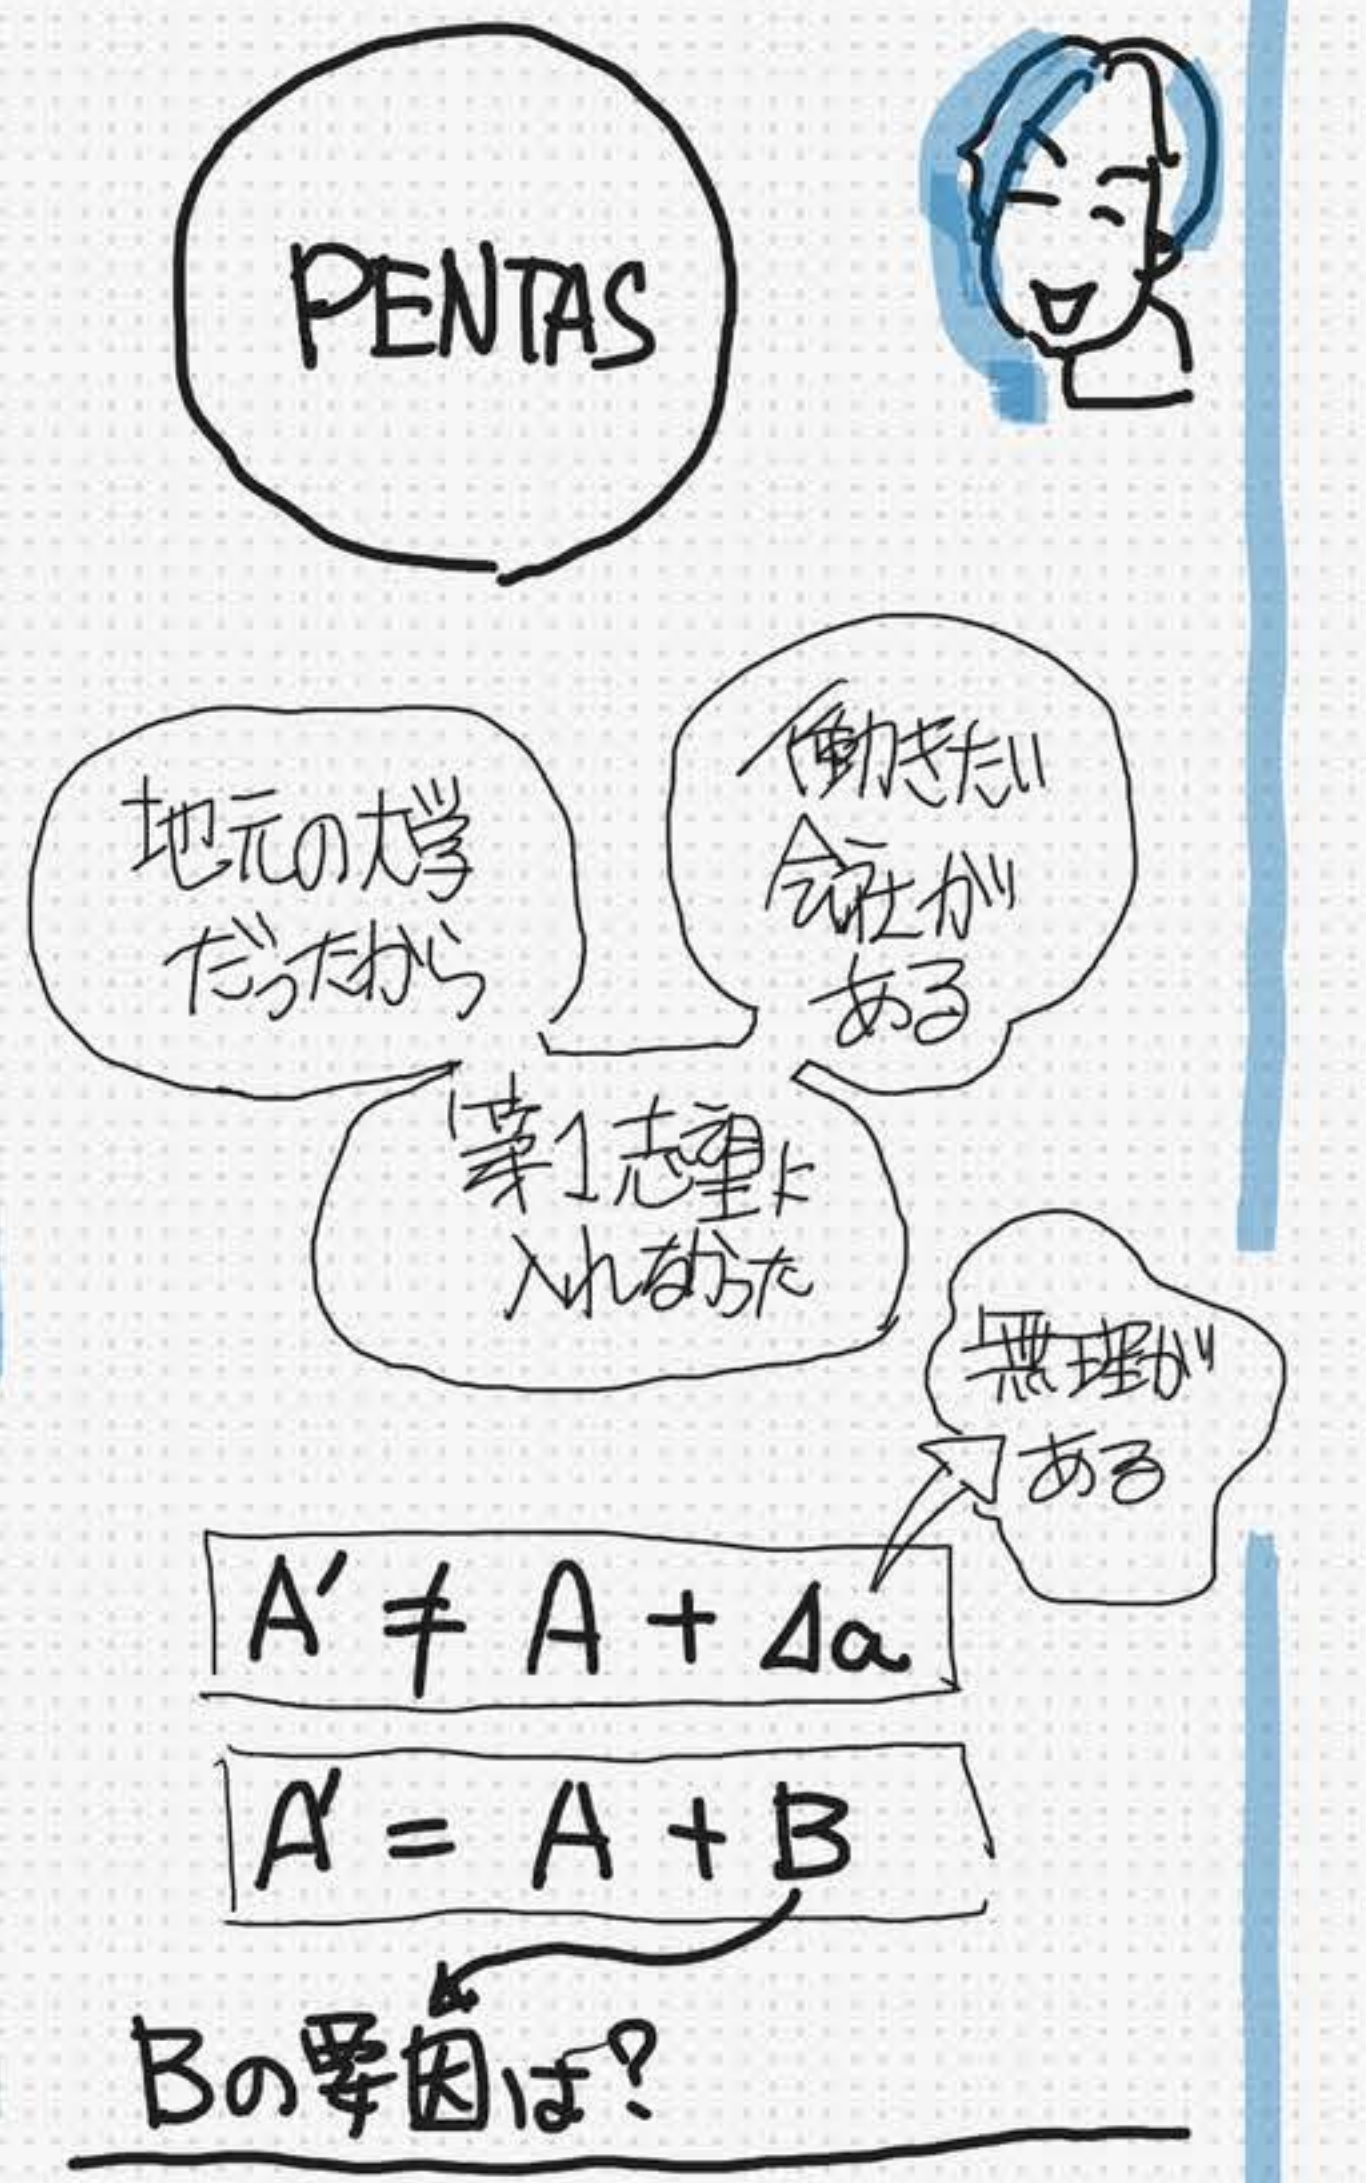 PENTAS
地元の大学
だったから
働きたい
会社が
ある
第1志望に
入れなかった
無理が
ある
A' ≠ A + Δa
A' = A + B
Bの要因は?